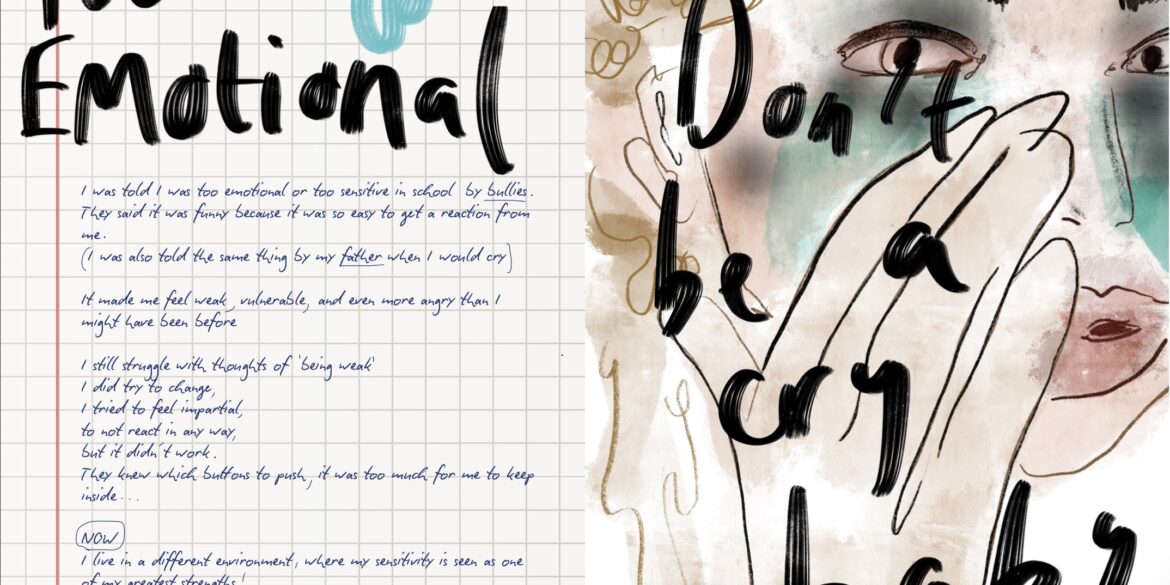 Emotional
I was told I was too emotional or too sensitive in school by bullies.
They said it was funny because it was so easy to get a reaction from
me.
(I was also told the same thing by my father when I would cry)
It made me feel weak, vulnerable, and even more angry than I
might have been before
I still struggle with thoughts of 'being weak'
I did try to change,
I tried to feel impartial,
to not react in any way,
but it didn't work.
They knew which buttons to push, it was too much for me to keep
inside...
NOW
I live in a different environment, where my sensitivity is seen as one
of my greatest strengths!
Don't
be a
cry
baby